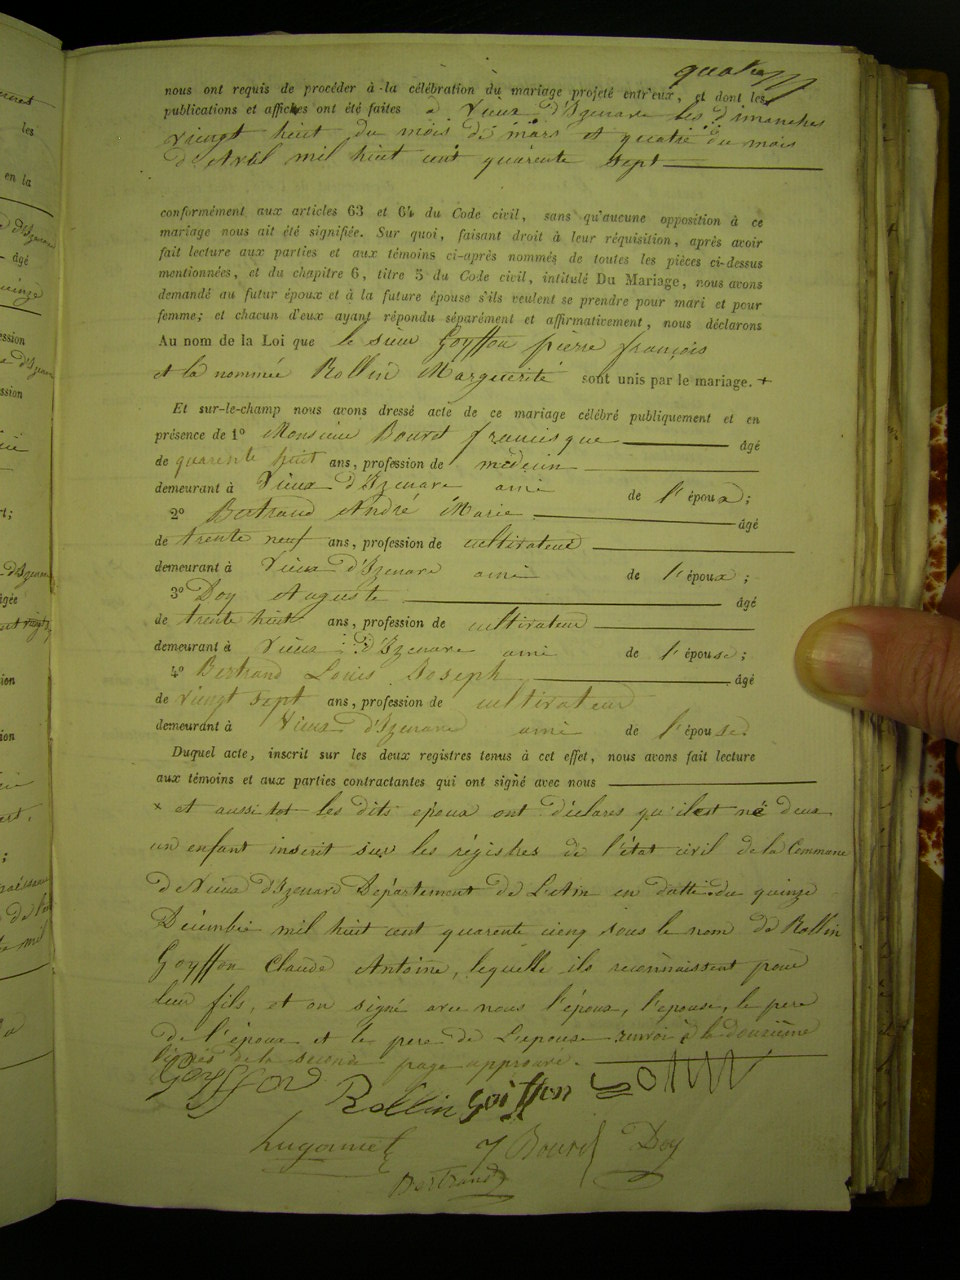 quatre
nous ont requis de procéder à la célébration du mariage projeté entr'eux, et dont les
publications et affiches ont été faites a Vieux d'Izenave les dimanches
viengt huit du mois de mars et quatre du mois
d'Avril mil huit cent quarente sept
conformément aux articles 63 et 64 du Code civil, sans qu'aucune opposition à ce
mariage nous ait été signifiée. Sur quoi, faisant droit à leur réquisition, après avoir
fait lecture aux parties et aux témoins ci-après nommés de toutes les pièces ci-dessus
mentionnées, et du chapitre 6, titre 5 du Code civil, intitulé Du Mariage, nous avons
demandé au futur époux et à la future épouse s'ils veulent se prendre pour mari et pour
femme; et chacun d'eux ayant répondu séparément et affirmativement, nous déclarons
Au nom de la Loi que le sieur Goyffon pierre françois
et la nommée Rollin Marguerite sont unis par le mariage. +
Et sur-le-champ nous avons dressé acte de ce mariage célébré publiquement et en
présence de 1° Monsieur Bouret francisque âgé
de quarente huit ans, profession de médecin
demeurant à Vieux d'Izenave ami de l'époux;
2° Bertrand André Marie âgé
de trente neuf ans, profession de cultivateur
demeurant à Vieux d'Izenave ami de l'époux;
3° Doy Auguste âgé
de trente huit ans, profession de cultivateur
demeurant à Vieux d'Izenave ami de l'épouse;
4° Bertrand Louis Joseph âgé
de viengt sept ans, profession de cultivateur
demeurant à Vieux d'Izenave ami de l'épouse.
Duquel acte, inscrit sur les deux registres tenus à cet effet, nous avons fait lecture
aux témoins et aux parties contractantes qui ont signé avec nous
x et aussi tot les dits époux ont déclares qu'il est né deux
un enfant inscrit sur les régistres de l'état civil de la Commune
de Vieux d'Izenave Département de L'Ain en datte du quinze
Décembre mil huit cent quarente cienq sous le nom de Rollin
Goyffon Claude Antoine, lequelle ils reconnaissent pour
leur fils, et on signé avec nous l'époux, l'epouse, le pere
de l'époux et le pere de L'epouse renvoi à la douzième
lignes de la seconde page approuvé.
Goyffon Rollin Goiffon Rollin
hugonnet f Bouret Doy
Bertrand